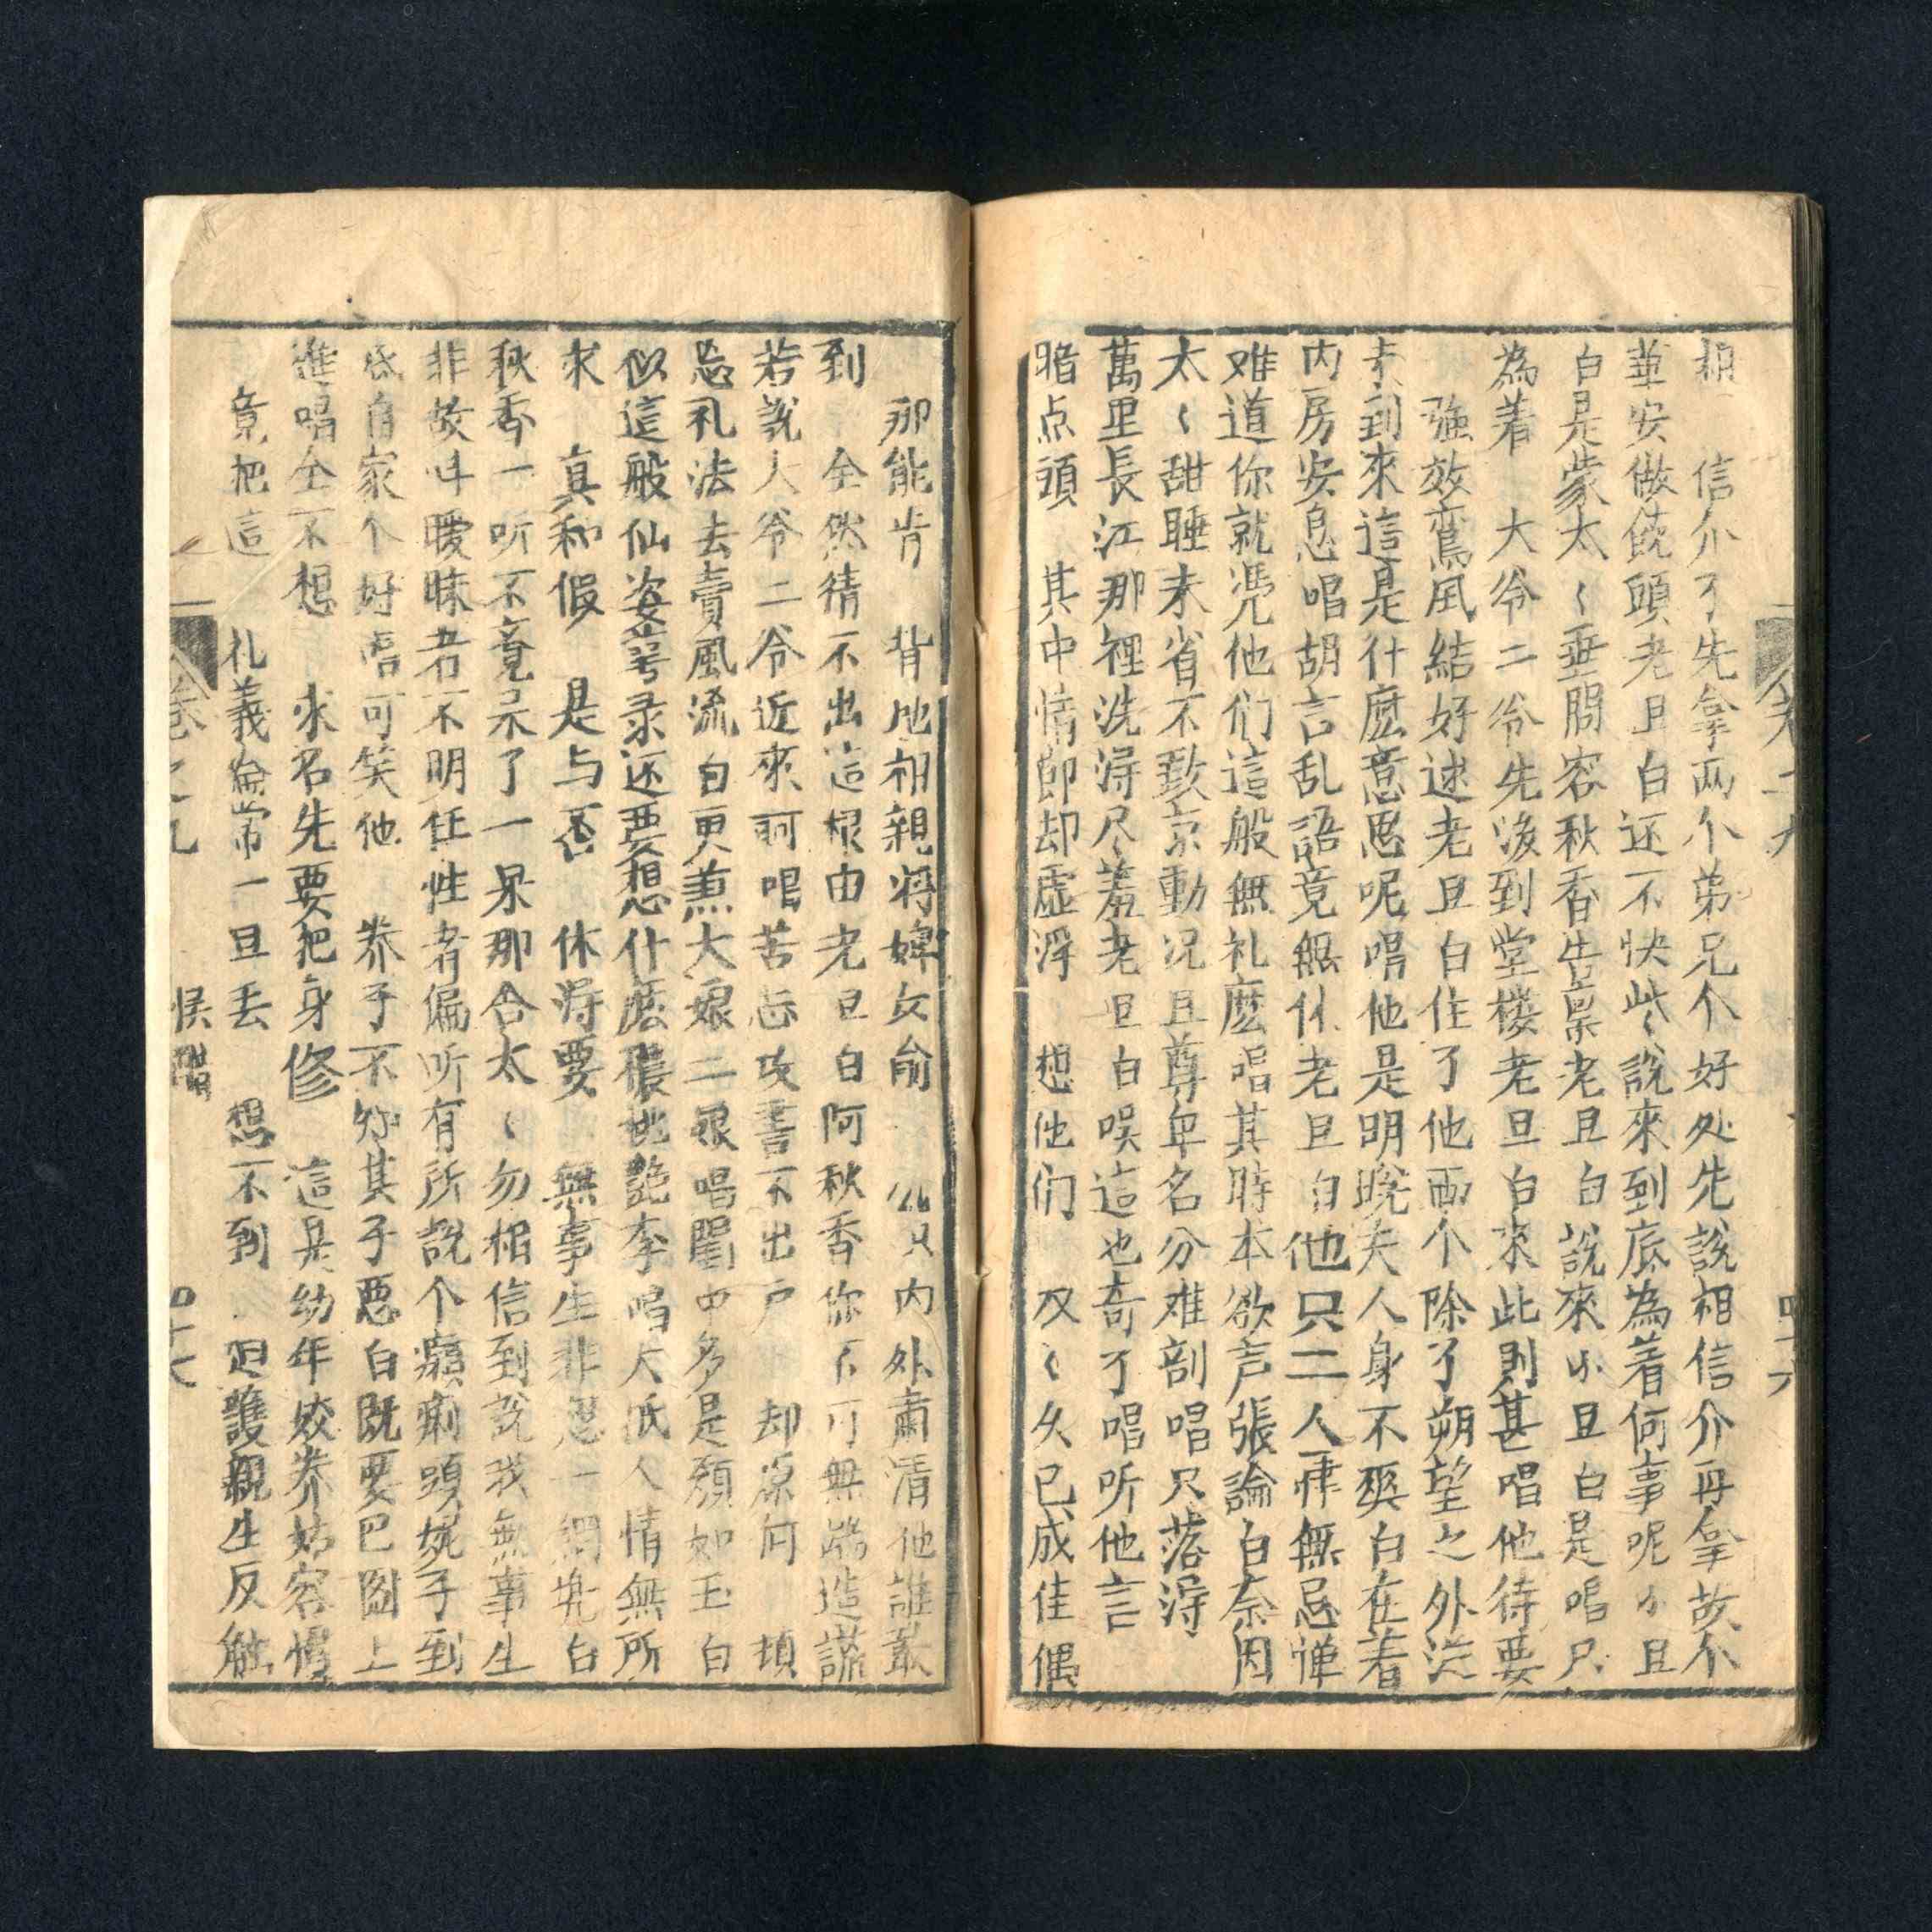 相 信介了先拿两个弟兄个好处先說相信介再拿故个
華安做饒頭老旦白还不快此〻說來到底為着何事呢小旦
白是蒙太〻垂問容秋香告禀老旦白說來小旦白是唱只
為着 大爷二爷先後到堂楼老旦白來此則甚唱他待要
強效鸞凤結好逑老旦白住了他両个除了朔望之外從
未到來這是什麽意思呢唱他是明晓夫人身不爽白在着
内房安息唱胡言乱語竟無休老旦白他只二人肆無忌惮
难道你就凭他们這般無礼麽唱其時本欲声張論白奈因
太〻甜睡未省不敢京動况且尊卑名分难剖唱只落淂
萬里長江那裡洗淂尽羞老旦白唉這也奇了唱听他言
暗点頭 其中情節却虚浮 想他们 双〻久已成佳偶
那能肯 背地相親将婢女偷 内外肅清他誰敢
到 全然猜不出這根由老旦白阿秋香你不可無端造謊
若說大爷二爷近來呵唱苦志攻書不出户 却原何 頃
忘礼法去賣風流白更兼大娘二娘唱閨中多是顔如玉白
似這般仙姿 还要想什麽 桃艶李唱大氐人情無所
求 真和假 是与否 休淂要 無事生非惹一網兜白
秋香一听不竟呆了一呆那合太〻勿相信到說我無事生
非故叫曖昧者不明任性者偏听有所說个癩痢頭娓子到
底自家个好唔可笑他 养子不知其子惡白既要巴圖上
進唱全不想 求名先要把身修 這是幼年姣养姑容慣
竟把這 礼義倫常一旦丢 想不到 護親生反触
卷之九
四十六